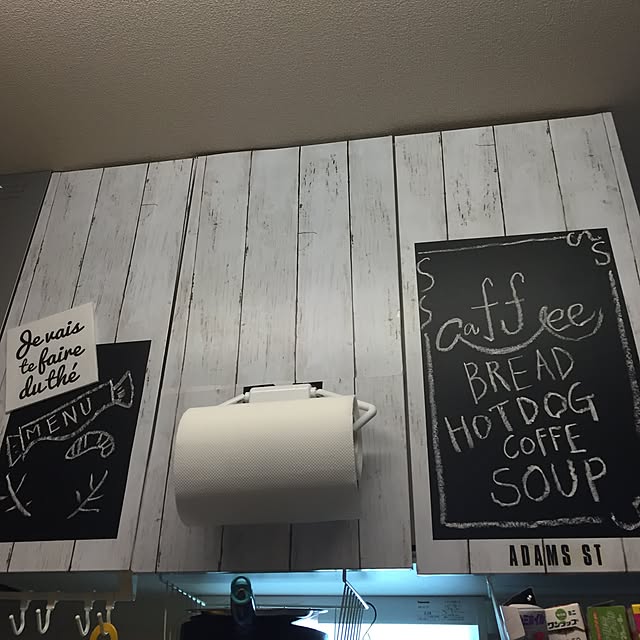 Je vais
te faire
du thé
MENU
caffee
BREAD
HOTDOG
COFFE
SOUP
ADAMS ST
ワンカップ